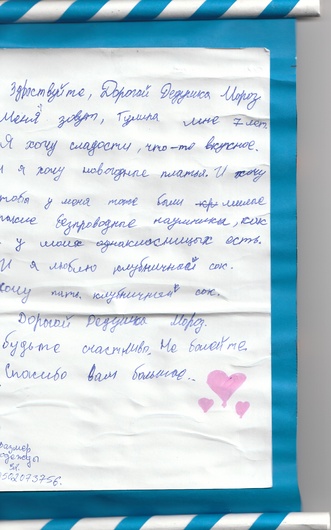 Здраствуйте, Дорогой Дедушка Мороз
Меня зовут, Гулина мне 7 лет.
Я хочу сладости, что-то вкусное.
и я хочу новогодние платья. И хочу
чтобы у меня тоже были милые
такие безпроводные наушники, как
у моих однаклосницых есть.
И я люблю клубничный сок.
хочу пить клубничный сок.
Дорогой Дедушка Мороз.
будьте счастливы. Не болейте.
Спосибо вам большое..
размер
одежды